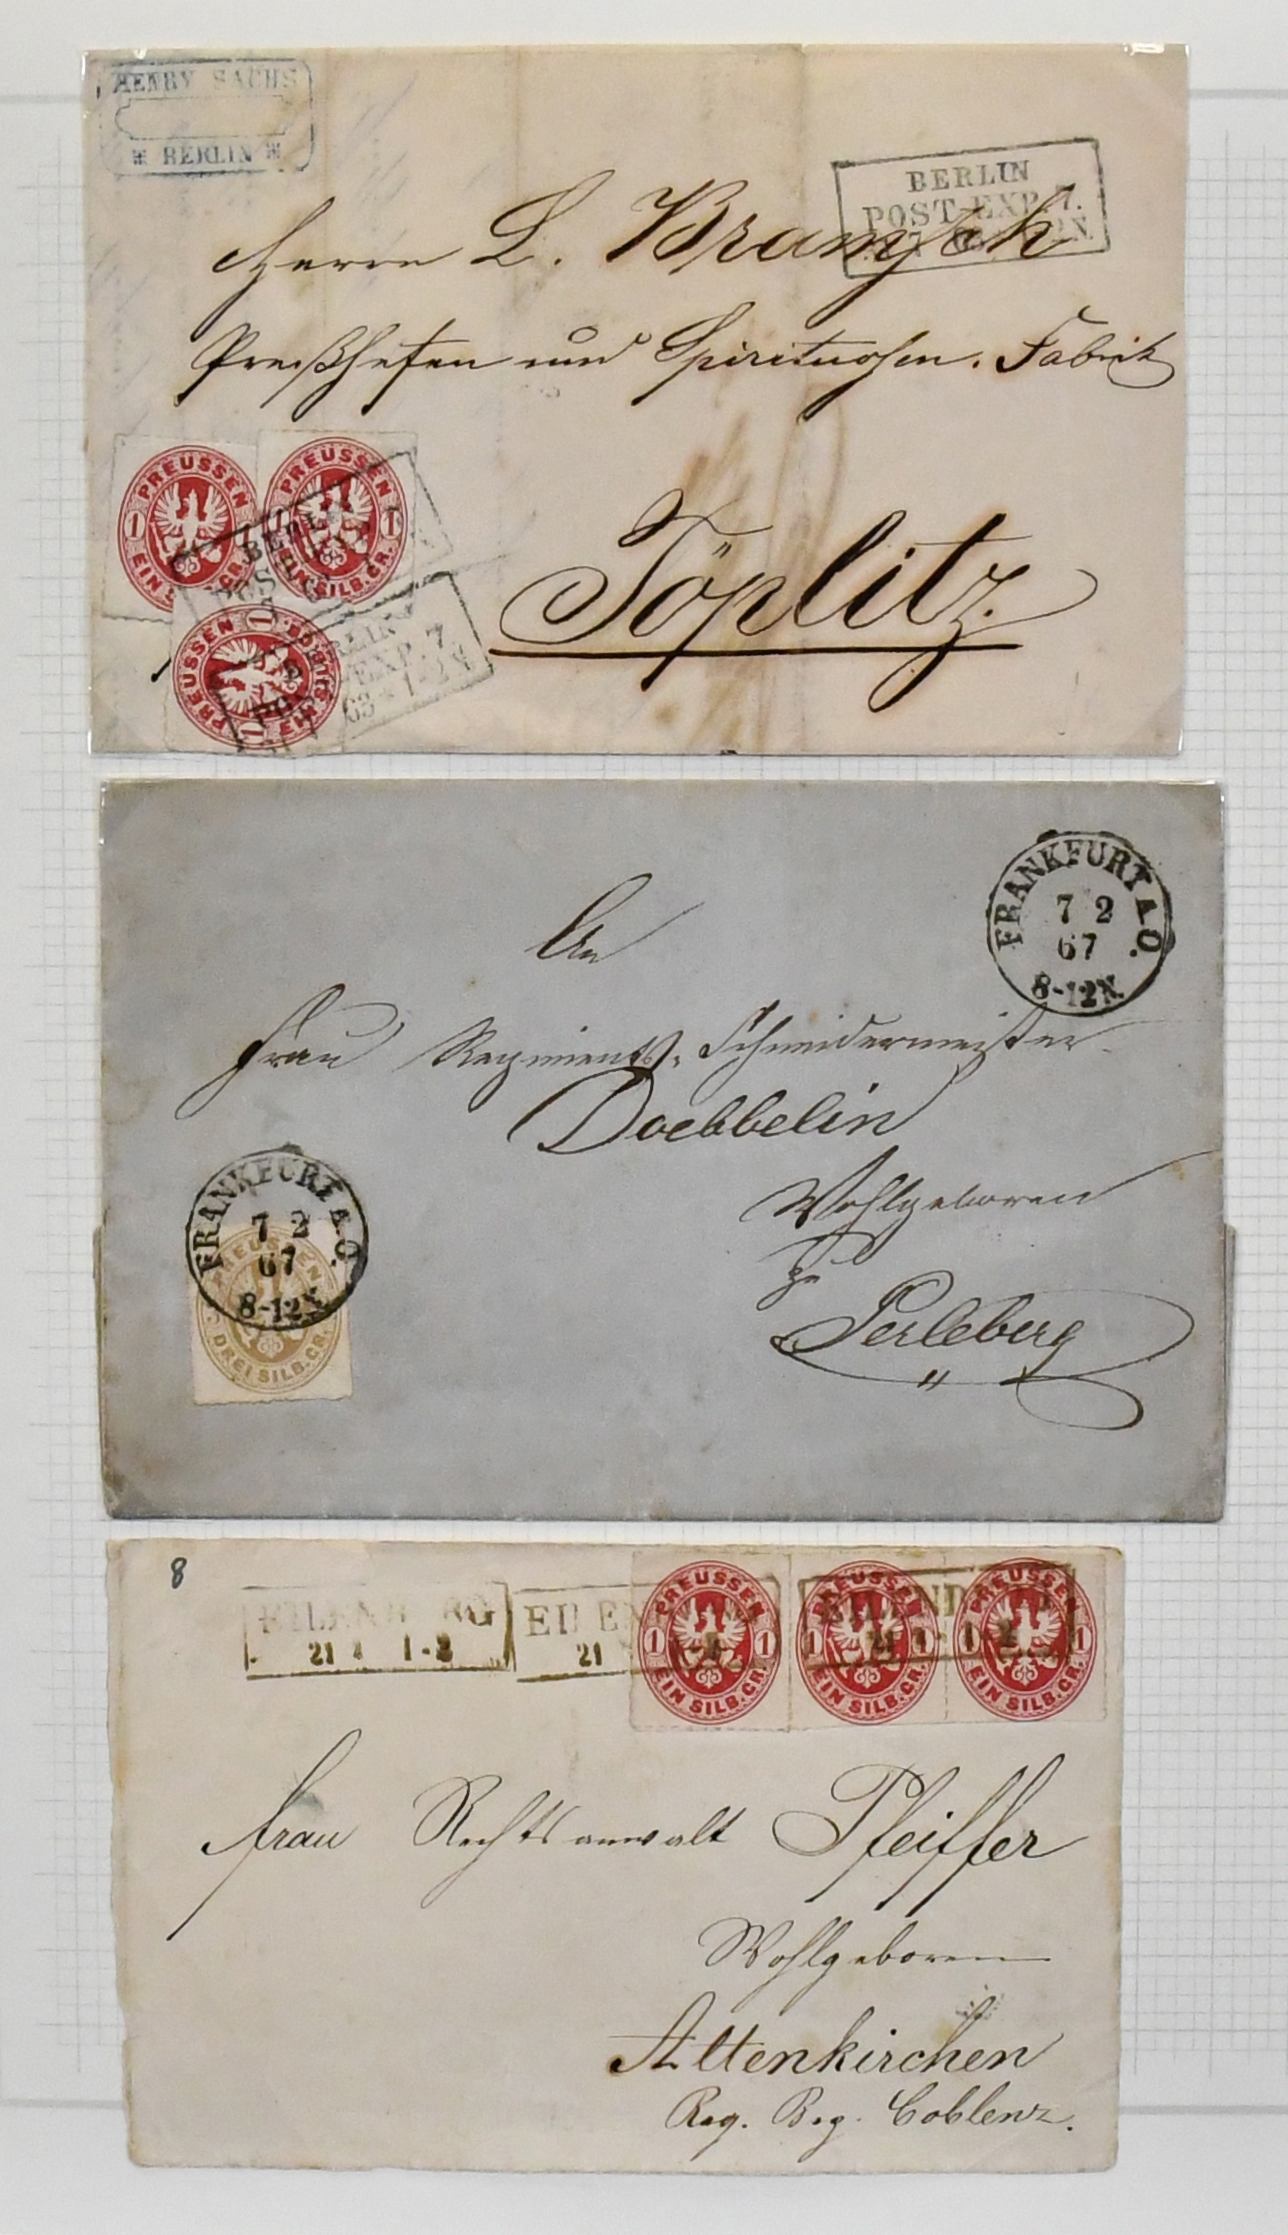 HENRY SACHS
* BERLIN *
BERLIN
POST-EXP. 7.
Herrn L. Bramsch
Preßhefen und Spirituosen. Fabrik
Töplitz.
PREUSSEN
EIN SILB.GR.
1
PREUSSEN
1
EIN SILB.GR.
PREUSSEN
1
1
EIN
BERLIN
POST-EXP. 7
63 * 1-2 N
FRANKFURT A.O.
7 2
67
8-12N.
An
Frau Regiments-Schneidermeister
Doebbelin
Wohlgeboren
zu
Perleberg
FRANKFURT A.O.
7 2
67
8-12N.
PREUSSEN
DREI SILB.GR.
8
EILENBURG
21 4 1-2
EILENBURG
21
PREUSSEN
1 1
EIN SILB.GR.
PREUSSEN
1
EIN SILB.GR.
PREUSSEN
1 1
EIN SILB.GR.
EILENBURG
21 4
Frau Rechtsanwalt Pfeiffer
Wohlgeboren
Altenkirchen
Reg. Bez. Coblenz.